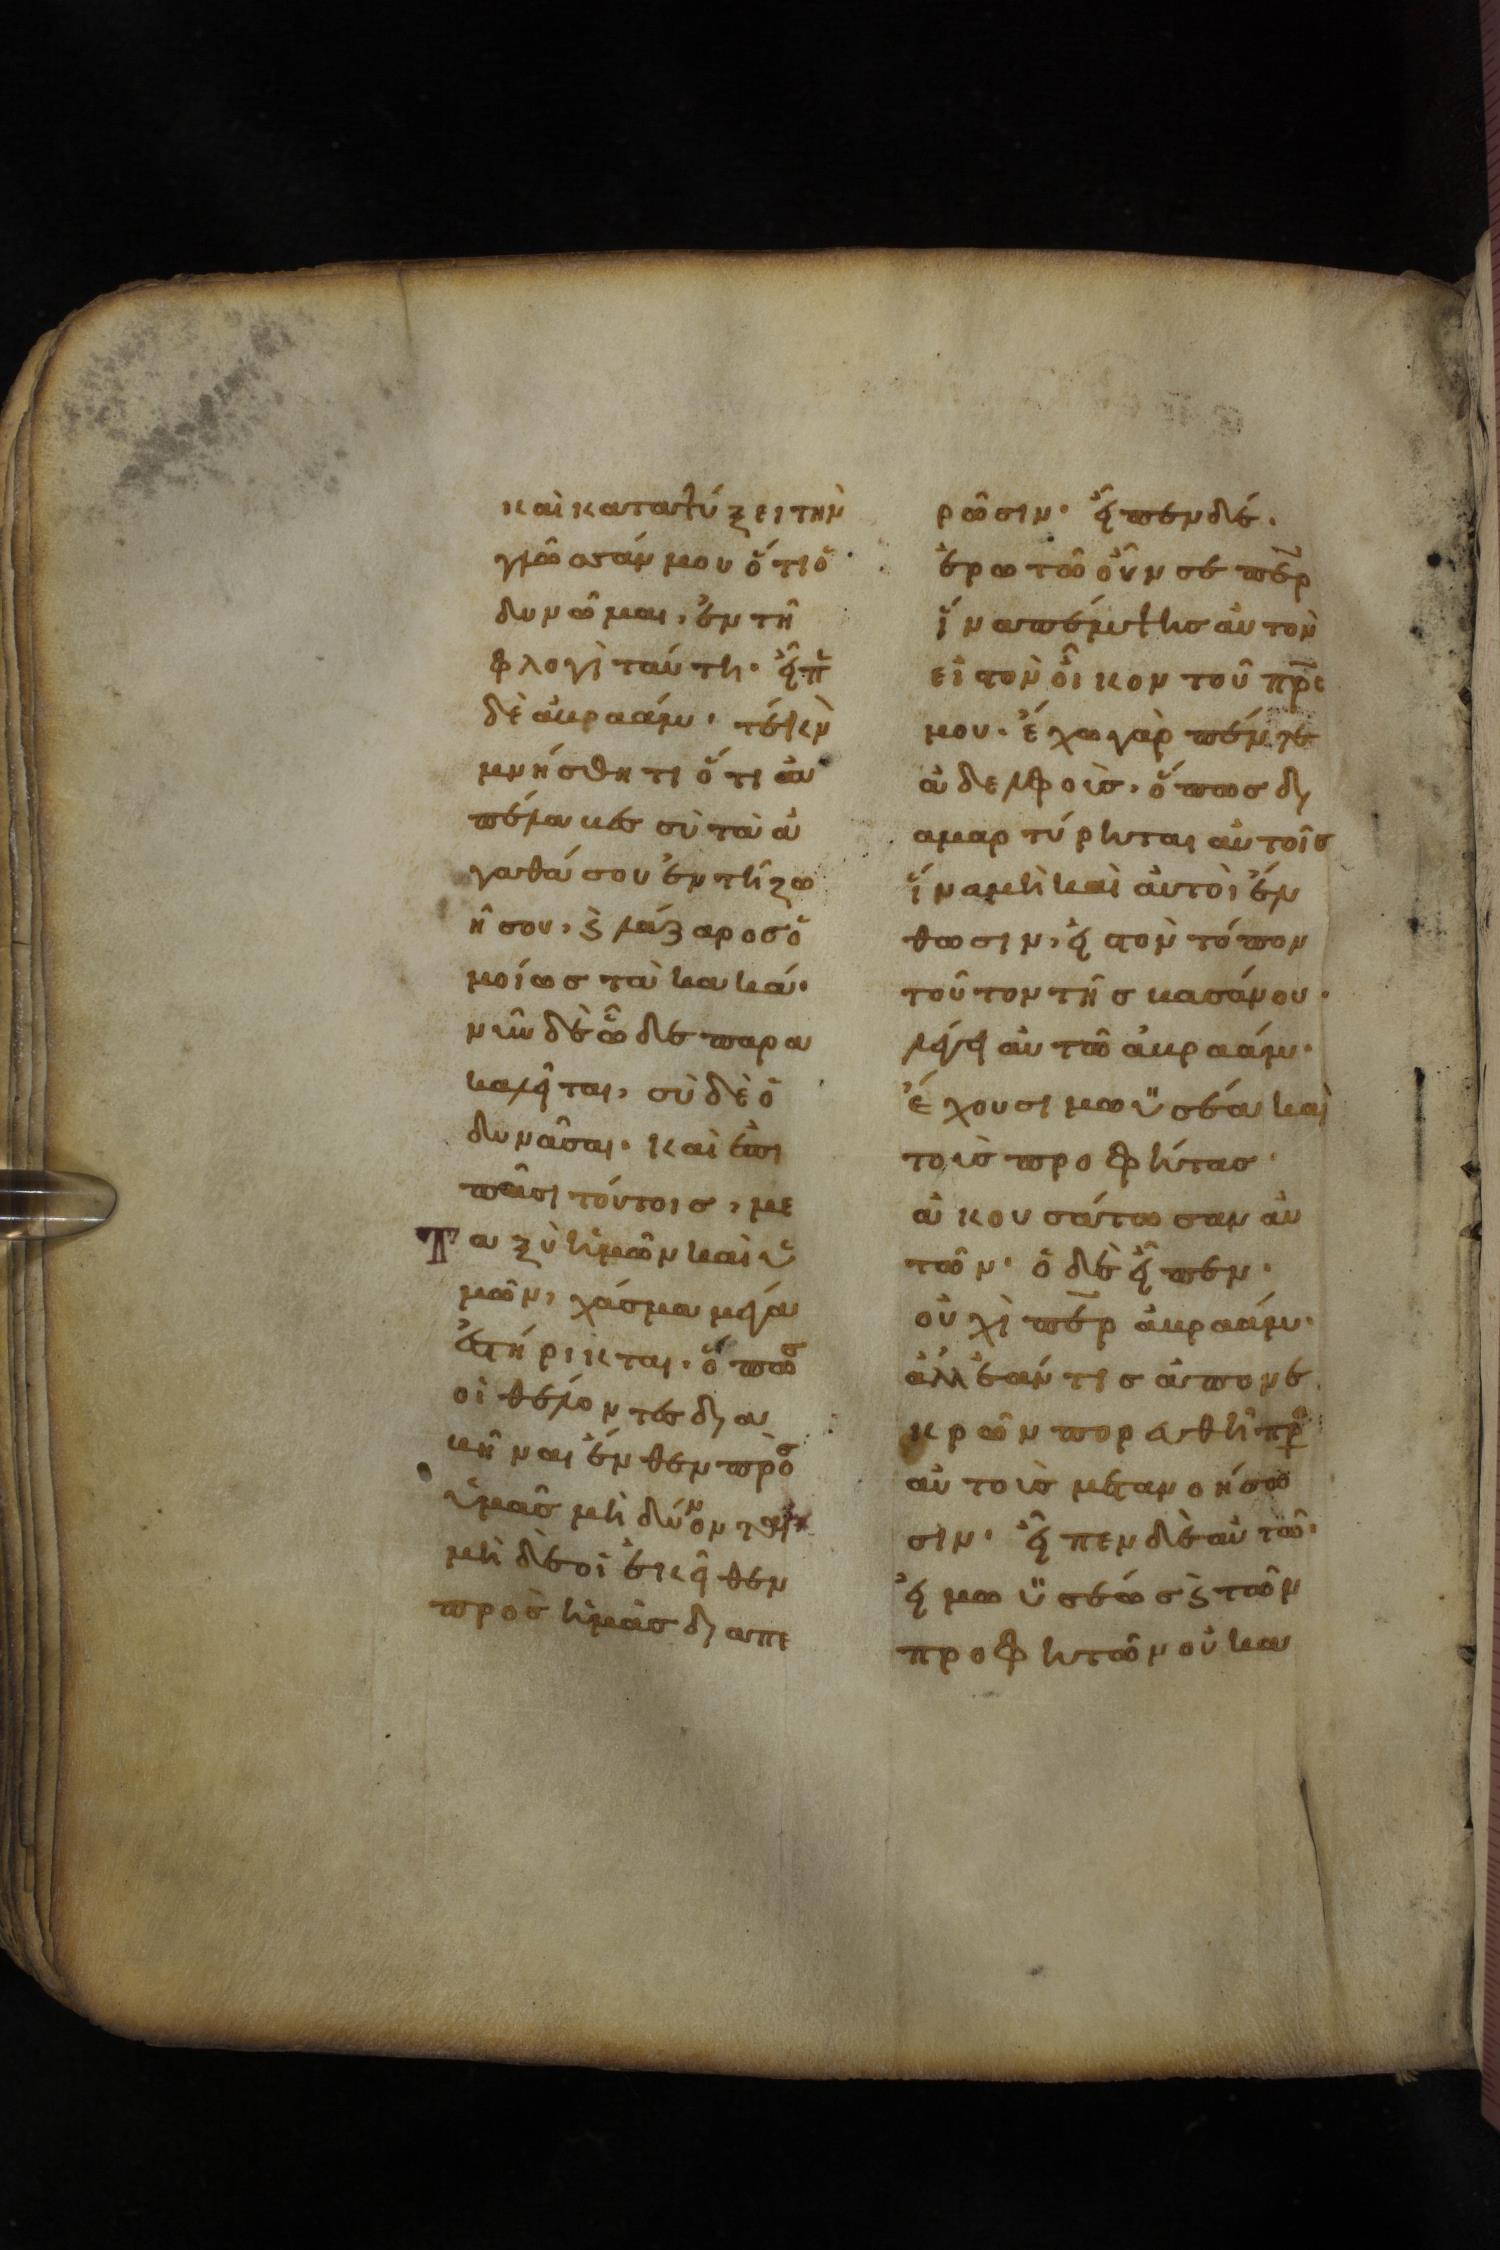 καὶ καταψύξει τὴν
γλῶσσάν μου ὅτι ὀ
δυνῶμαι, ἐν τῆ
φλογὶ ταύτη· εἶπ
δὲ ἀβραάμ· τέκν
μνήσθητι ὅτι ἀ
πέλαβες σὺ τὰ ἀ
γαθά σου ἐν τῆ ζω
ῆ σου, ϗ λάζαρος ὁ
μοίως τὰ κακά·
νῦν δὲ ὧδε παρα
καλεῖται, σὺ δὲ ὀ
δυνᾶσαι· καὶ ἐπὶ
πᾶσι τούτοις, με
ταξὺ ἡμῶν καὶ ὑ
μῶν, χάσμα μέγα
ἐστήρικται· ὅπως
οἱ θέλοντες δια
βῆναι ἔνθεν πρὸς
ὑμᾶς μὴ δύνονται
μὴ δὲ οἱ ἐκεῖθεν
πρὸς ἡμᾶς διαπε
ρῶσιν· εἶπεν δέ·
ἐρωτῶ οὖν σε περ
ἵνα πέμψης αὐτὸν
εἰς τὸν οἶκον τοῦ πρς
μου· ἔχω γὰρ πέντε
ἀδελφοὺς· ὅπως δι
αμαρτύρηται αὐτοῖς
ἵνα μὴ καὶ αὐτοὶ ἔλ
θωσιν, εἰς τὸν τόπον
τοῦτον τῆς βασάνου·
λέγει αὐτῶ ἀβραάμ·
ἔχουσι μωϋσέα καὶ
τοὺς προφήτας·
ἀκουσάτωσαν αὐ
τῶν· ὁ δὲ εἶπεν·
οὐχὶ περ ἀβραάμ·
ἀλλ ἐάν τις ἀπο νε
κρῶν πορευθῆ πρ
αὐτοὺς μετανοήσω
σιν· εἶπεν δὲ αὐτῶ·
εἰ μωϋσέως ϗ τῶν
προφητῶν οὐκ α